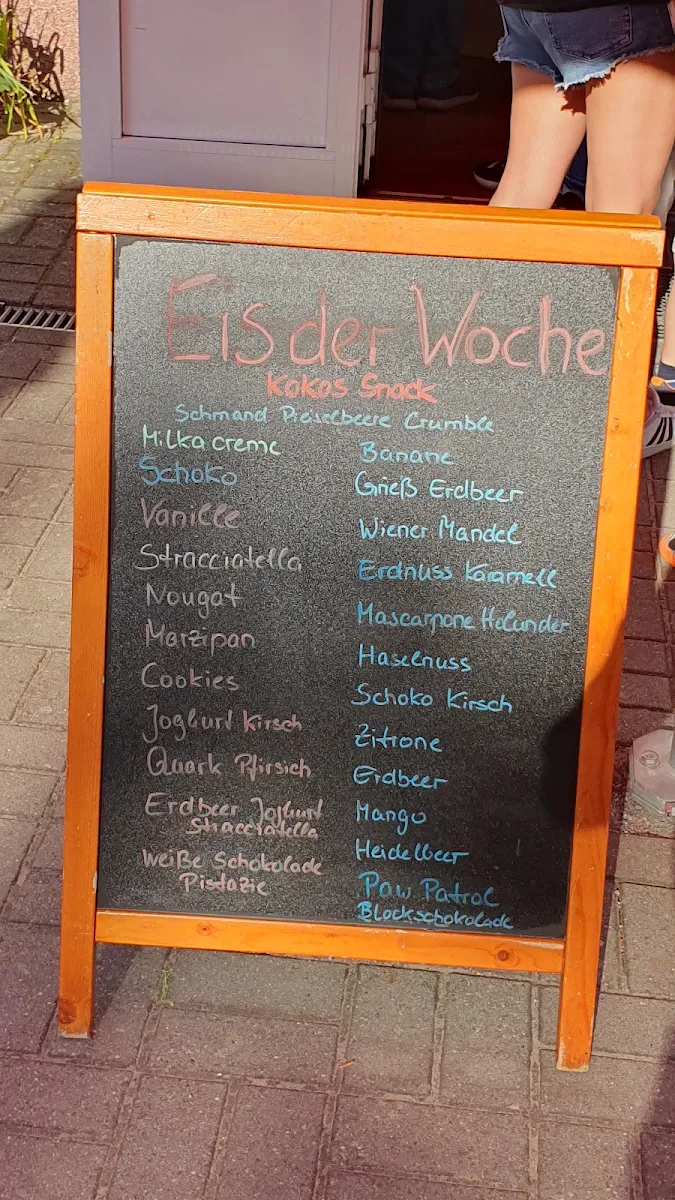 Eis der Woche
Kokos Snack
Schmand Preiselbeere Crumble
Milka creme
Schoko
Vanille
Stracciatella
Nougat
Marzipan
Cookies
Joghurt Kirsch
Quark Pfirsich
Erdbeer Joghurt
Stracciatella
Weiße Schokolade
Pistazie
Banane
Grieß Erdbeer
Wiener Mandel
Erdnuss Karamell
Mascarpone Holunder
Haselnuss
Schoko Kirsch
Zitrone
Erdbeer
Mango
Heidelbeer
Paw Patrol
Blockschokolade